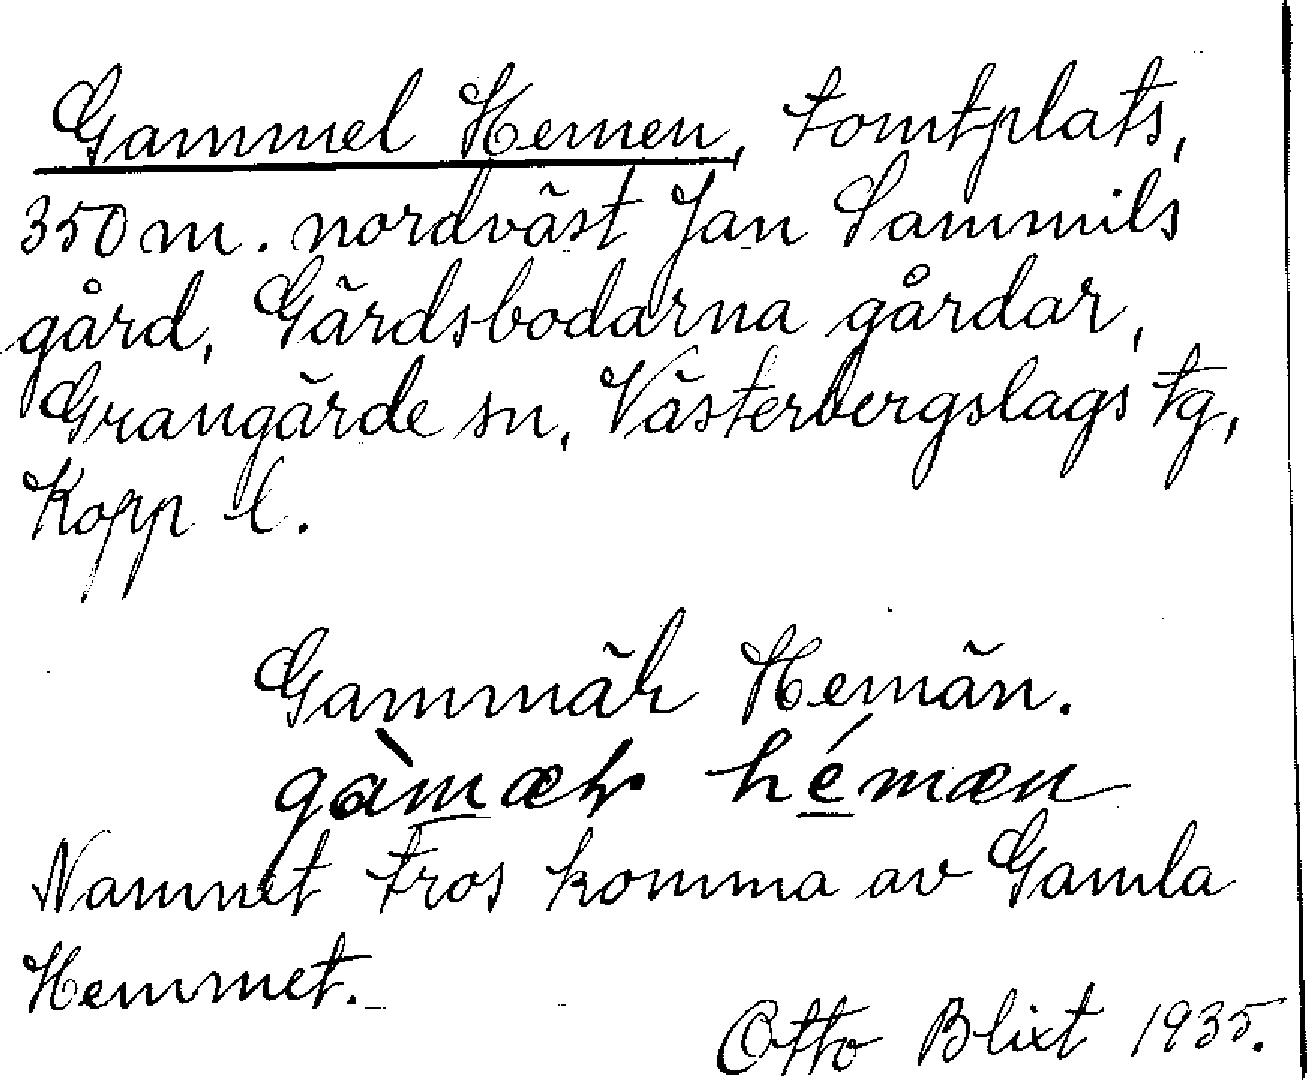 Gammel Hemen, tomtplats,
350 m. nordväst Jan Sammils
gård, Gärdsbodarna gårdar,
Grangärde sn, Västerbergslags tg,
Kopp l.
Gammäł Hemän.
gàmæł hémæn
Namnet tros komma av Gamla
Hemmet.
Otto Blixt 1935.